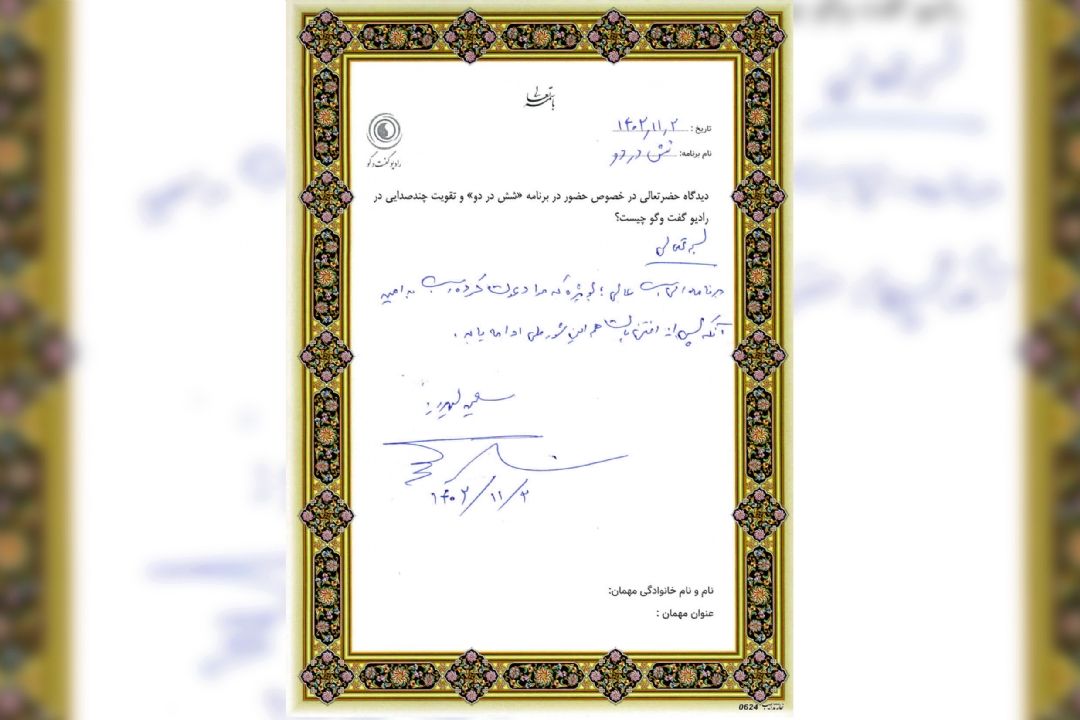 باسمه تعالی
رادیو گفت و گو
تاریخ: ۱۴۰۲٫۱۱٫۲
نام برنامه: شش در دو
دیدگاه حضرتعالی در خصوص حضور در برنامه «شش در دو» و تقویت چندصدایی در
رادیو گفت وگو چیست؟
بسمه تعالی
برنامه ای است عالی؛ بویژه که مرا دعوت کرده است به امید
آنکه پس از هم این شور ملی ادامه یابد.
۱۴۰۲/۱۱/۲
نام و نام خانوادگی مهمان:
عنوان مهمان :
0624